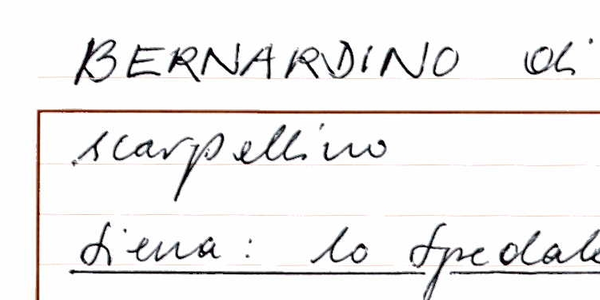 BERNARDINO di
scarpellino
Siena: lo Spedale